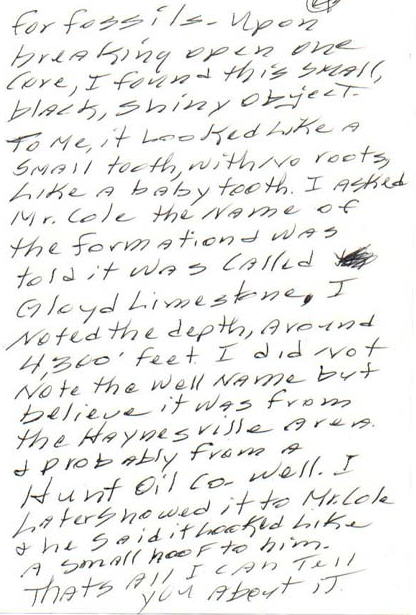 for fossils - Upon
breaking open one
Core, I found this small,
black, shiny object.
To Me, it Looked Like A
small tooth, with No roots,
Like A baby tooth. I Asked
Mr. Cole the Name of
the formation & was
told it was called
Gloyd Limestone, I
Noted the depth, Around
4,300' feet I did not
Note the Well Name but
believe it was from
the Haynesville Area.
& probably from A
Hunt Oil Co. Well. I
Later showed it to Mr. Cole
& he said it Looked Like
A small hoof to him.
Thats All I can Tell
you About it.